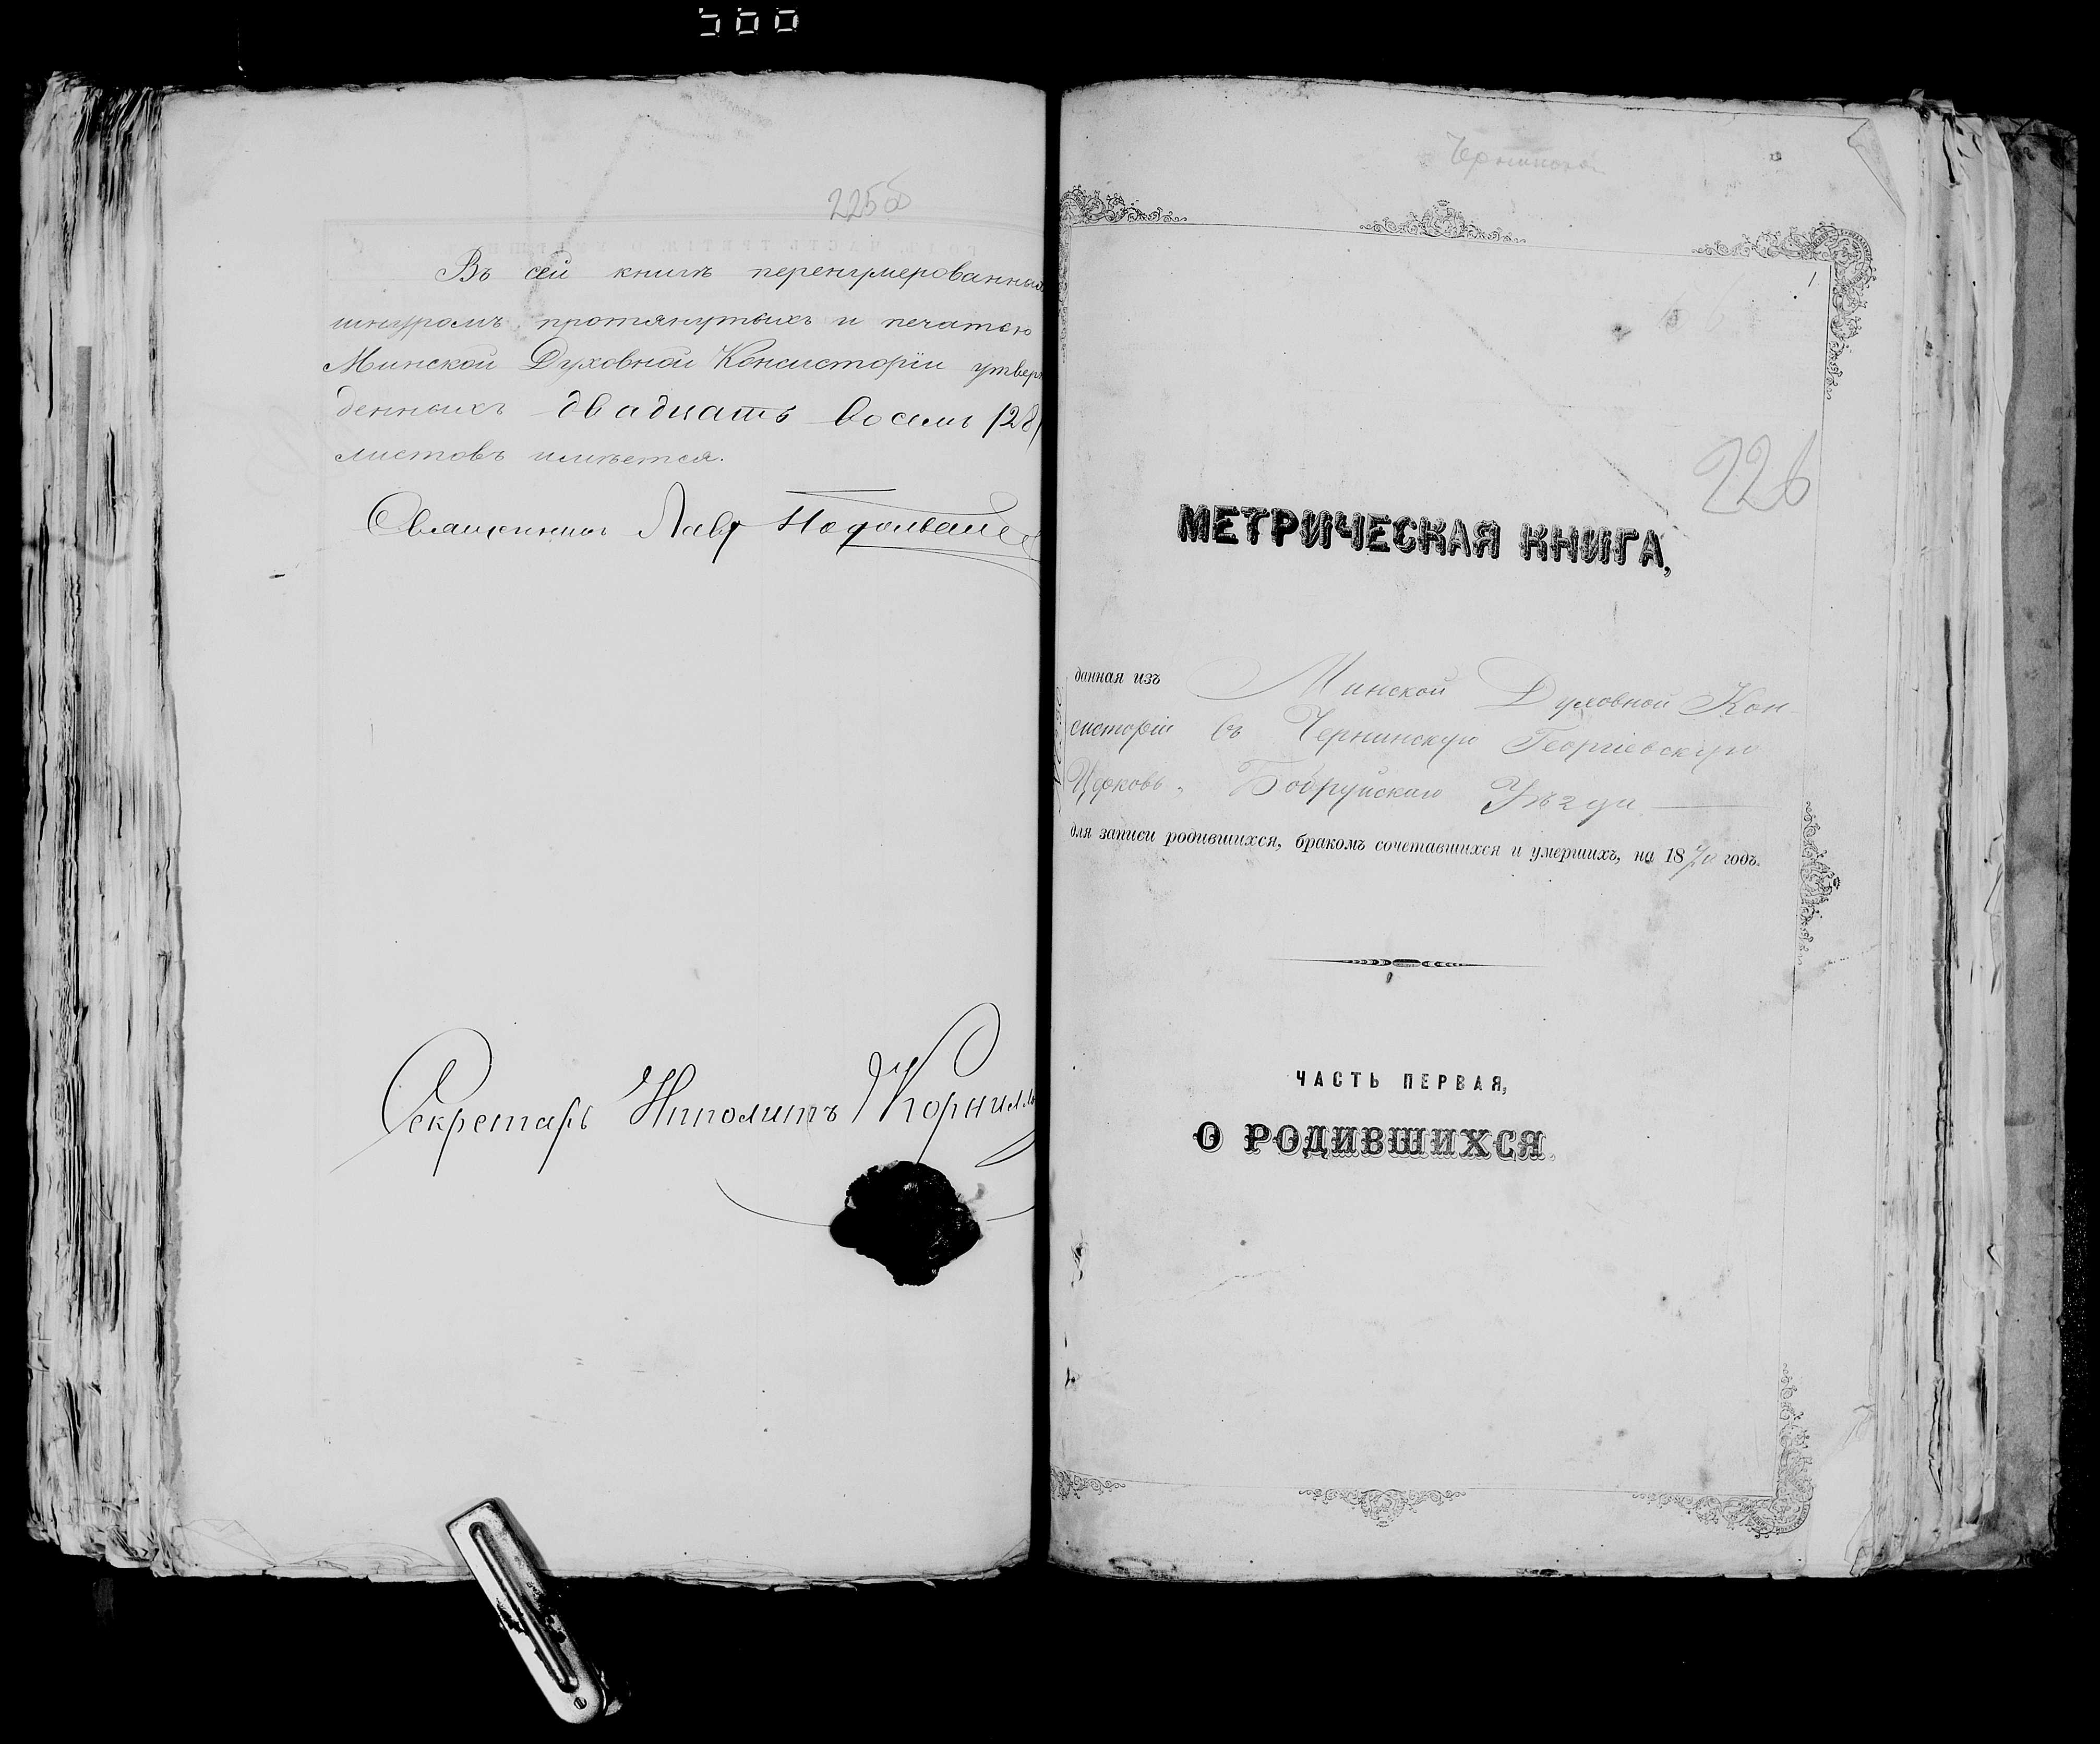 500
225об
Въ сей книгѣ перенумерованныхъ
шнуромъ протянутыхъ и печатью
Минской Духовной Консисторіи утверж
денныхъ двадцать восемь /28/
листовъ имѣется.
Священникъ
Секретарь Ипполитъ Корнил
1
226
МЕТРИЧЕСКАЯ КНИГА,
данная изъ Минской Духовной Кон-
систоріи въ Чернинскую Георгіевскую
Церковь, Бобруйскаго Уѣзда
для записи родившихся, бракомъ сочетавшихся и умершихъ, на 1870 годъ.
ЧАСТЬ ПЕРВАЯ,
О РОДИВШИХСЯ.